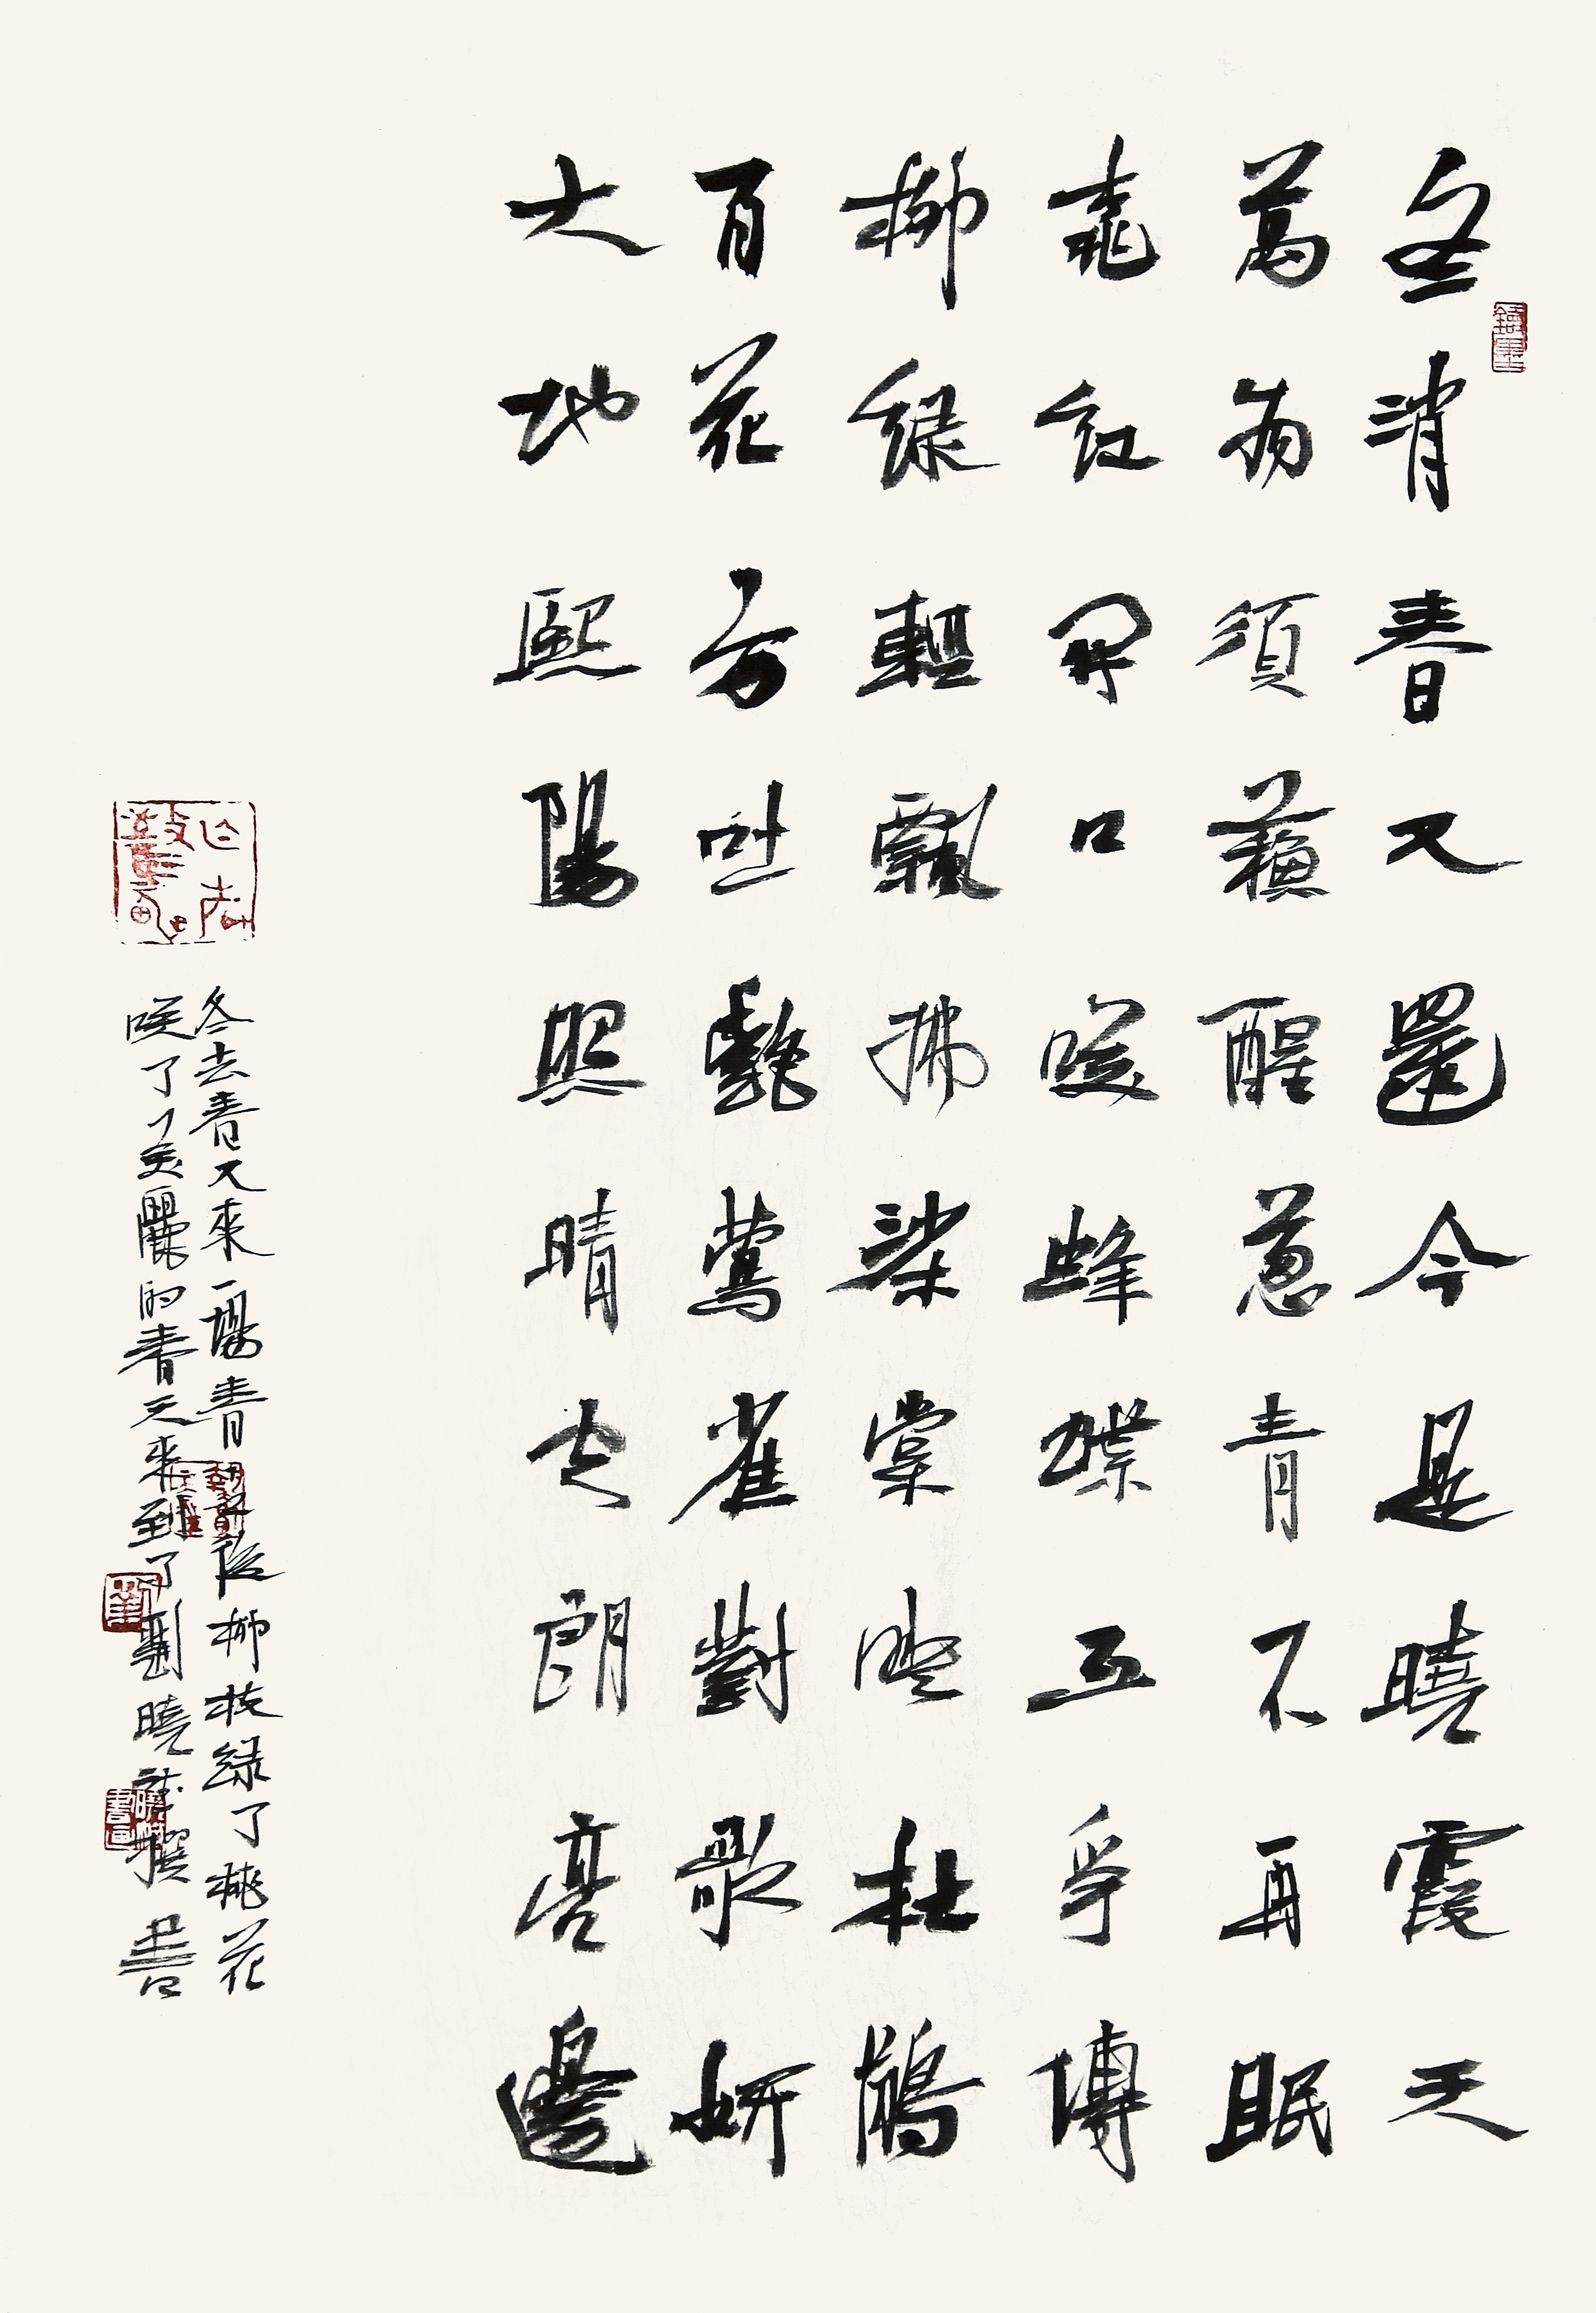 冬消春又還今是曉霞天
萬物須蘇醒蔥青不再眠
桃紅開口笑蜂蝶互爭傳
柳綠輕飄拂桬棠杜鵑
百花芳吐艷鶯雀對歌妍
大地熙陽照晴空朗亮邊
冬去春又來一場青之後柳枝綠了桃花
笑了美麗的春天來到了劉曉龍撰書